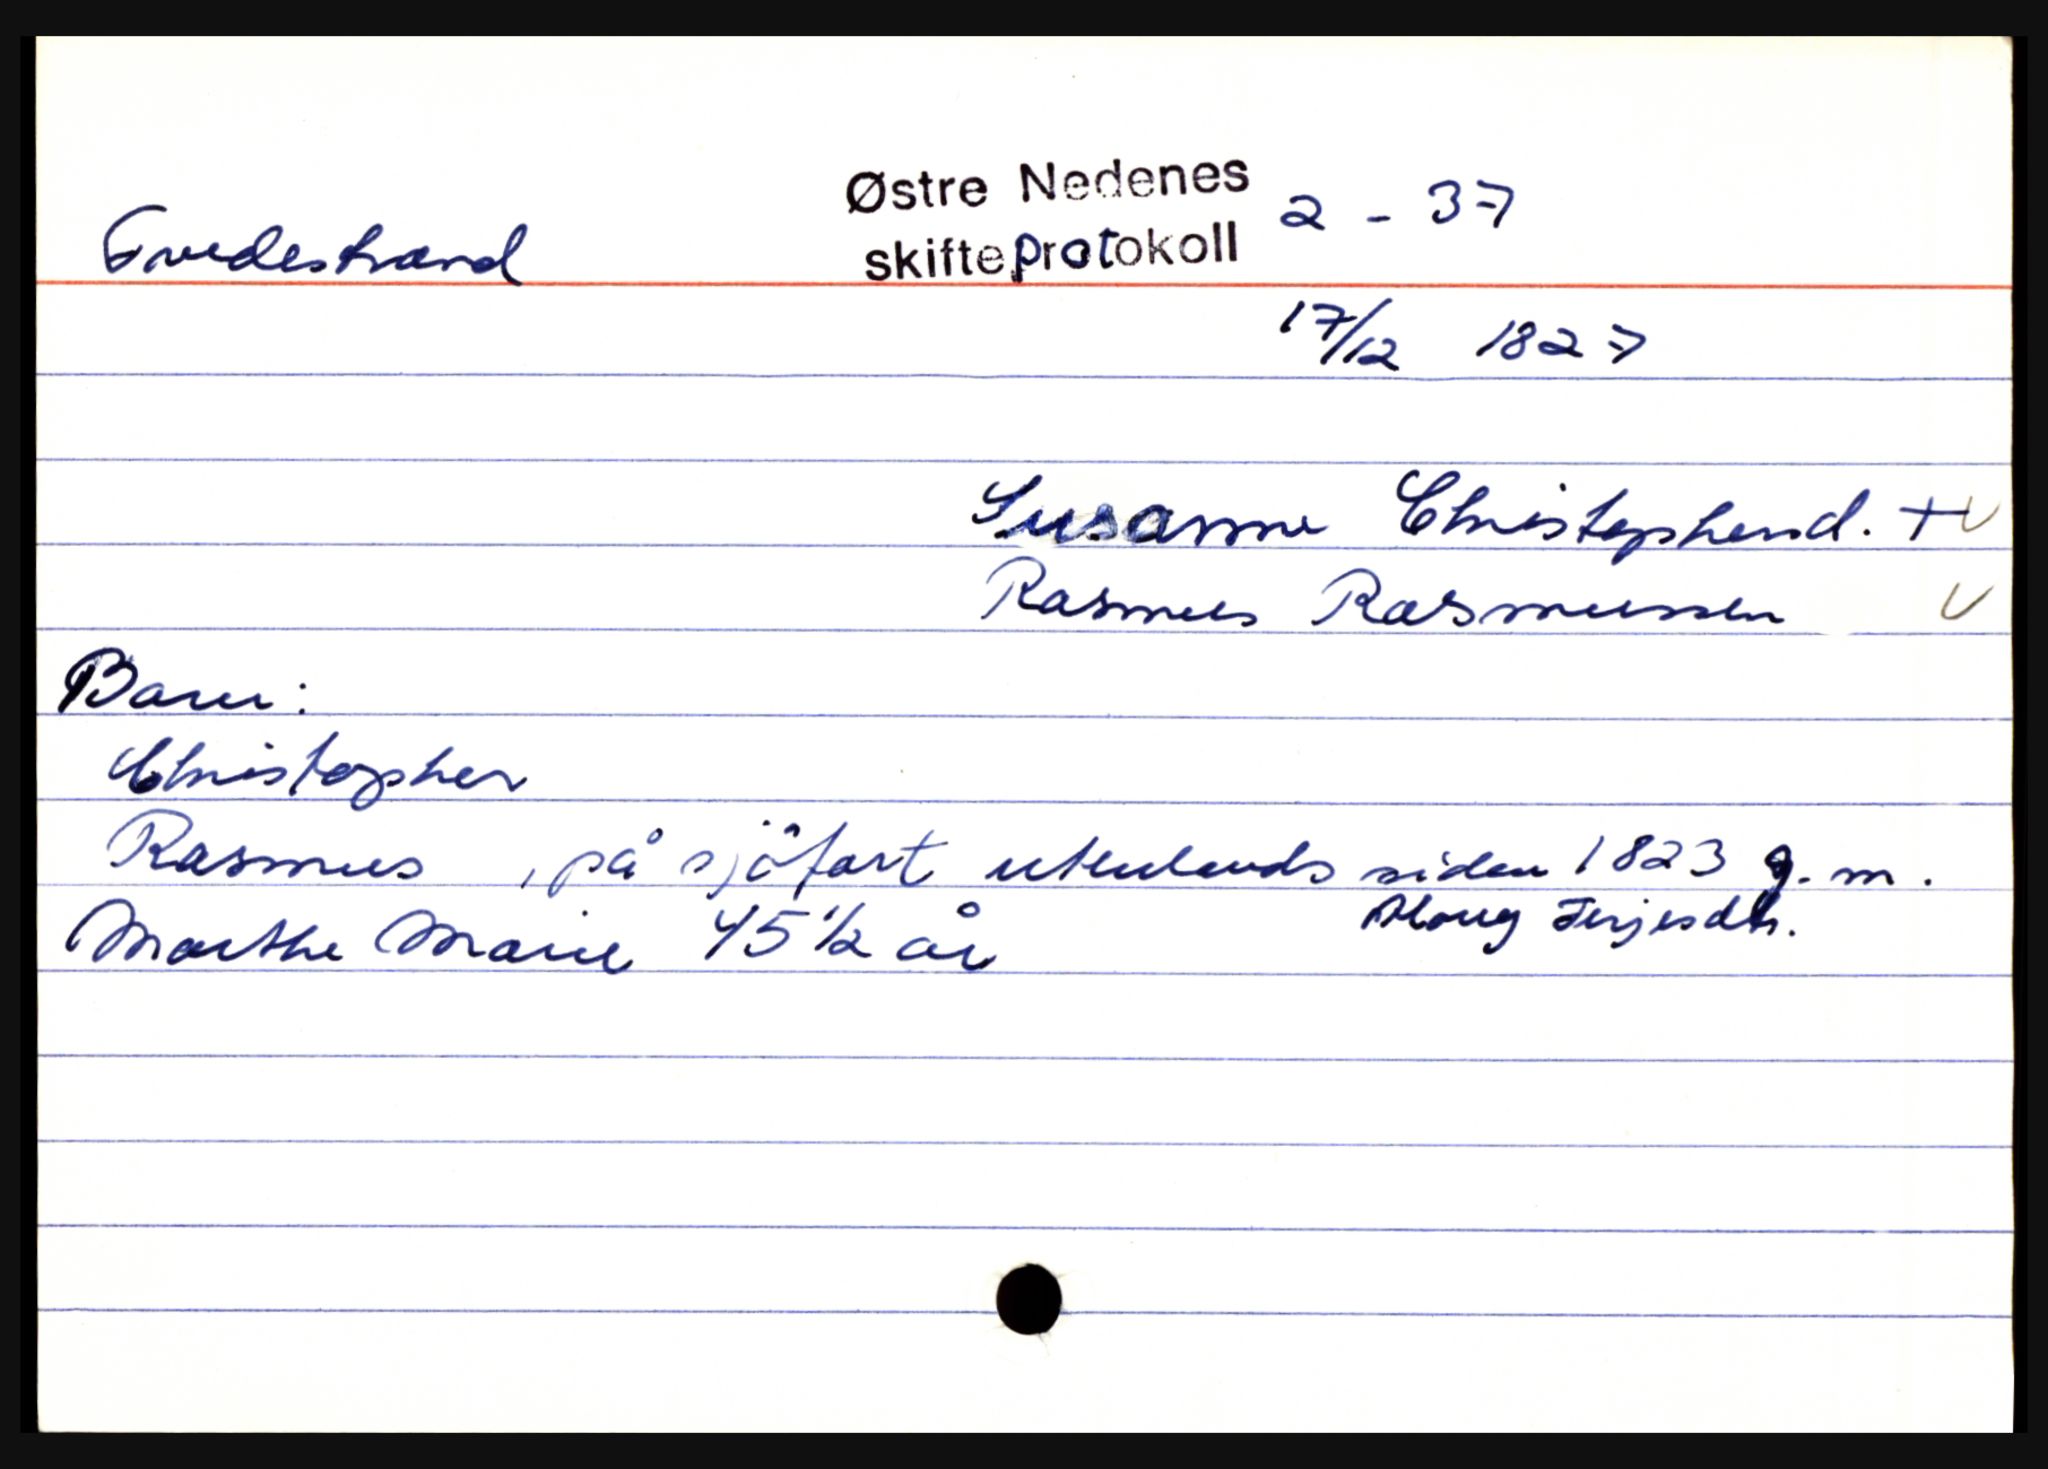 Østre Nedenes 2 - 37
Tvedestrand skifteprotokoll
17/12 1827
Susanne Christophersd. +
Rasmus Rasmussen
Barn:
Christopher
Rasmus , på sjöfart utenlands siden 1823 g. m.
Marthe Marie 45 1/2 år Terjesdtr.